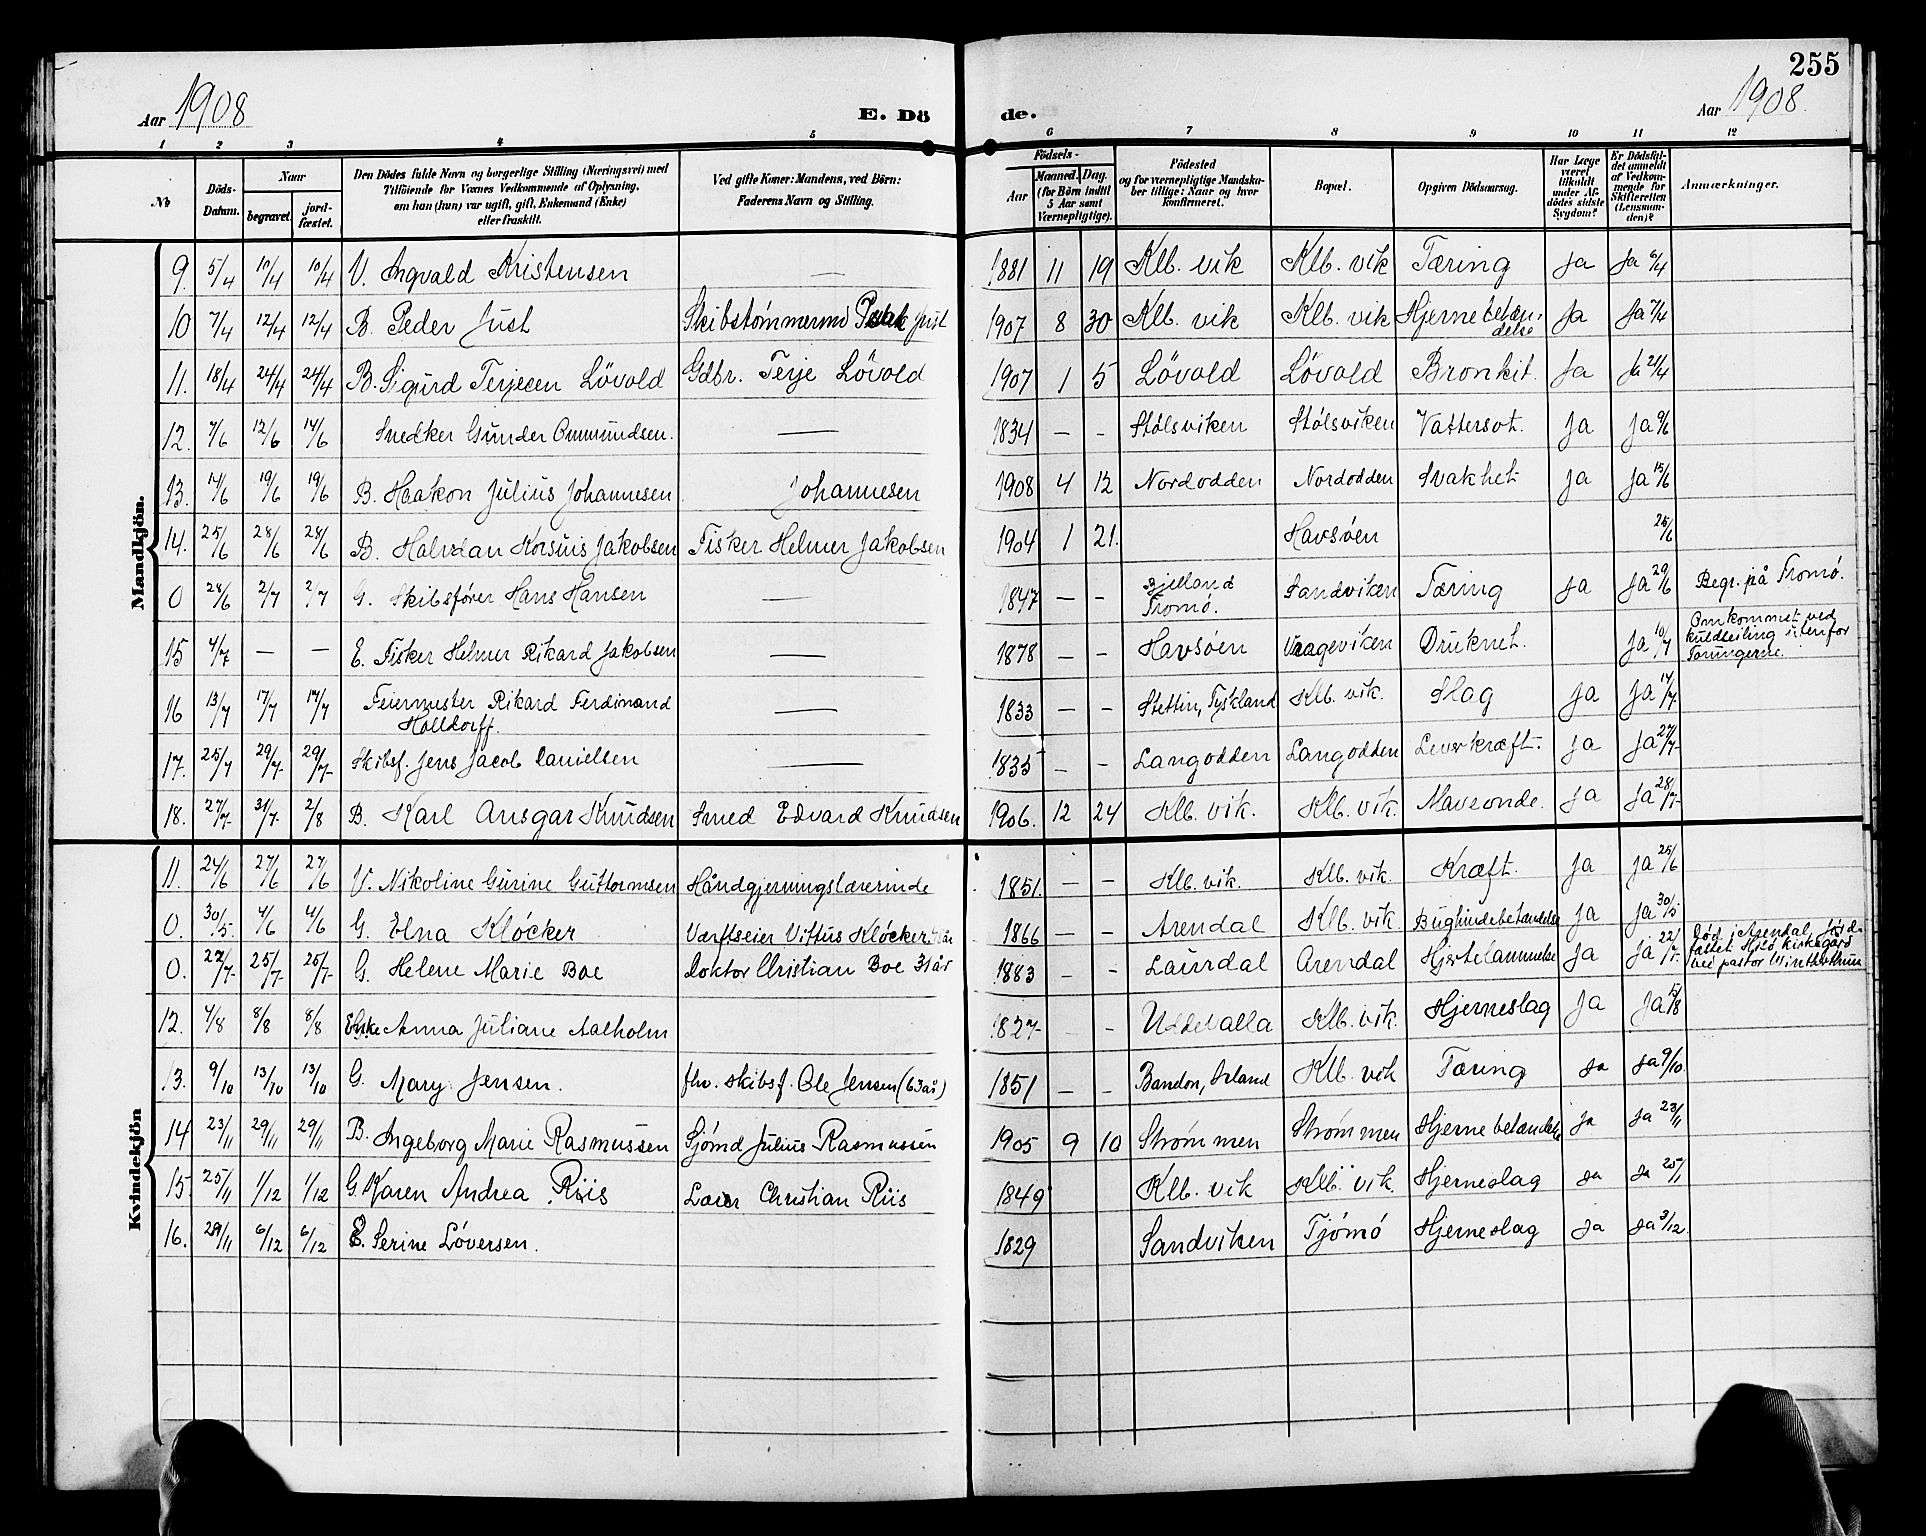 255
Aar 1908 E. Dö de. Aar 1908.
1 2 3 4 5 6 7 8 9 10 11 12
No Döds-Datum. Naar begravet. jordfæstet. Den Dödes fulde Navn og borgerlige Stilling (Næringsvei) med Tilföiende for Voxnes Vedkommende af Oplysning, om han (hun) var ugift, gift, Enkemand (Enke) eller fraskilt. Ved gifte Koner: Mandens, ved Börn: Faderens Navn og Stilling. Födsels- Aar Maaned. Dag. (for Börn indtil 5 Aar samt Værnepligtige). Födested og for værnepligtige Mandskaber tillige: Naar og hvor Konfirmeret. Bopæl. Opgiven Dödsaarsag. Har Læge været tilkaldt under Afdödes sidste Sygdom? Er Dödsfaldet anmeldt af Vedkommende for Skifteretten (Lensmanden)? Anmærkninger.
Mandkjön.
9. 5/4 10/4 10/4 V. Ingvald Kristensen — 1881 11 19 Klb. vik Klb. vik Tæring Ja Ja 6/4
10 7/4 12/4 12/4 B. Peder Just Skibstømmermd Just 1907 8 30 Klb. vik Klb. vik Hjernebetændelse Ja Ja 7/4
11. 18/4 24/4 24/4 B. Sigurd Terjesen Lövold Gdbr. Terje Lövold 1907 1 5 Lövold Lövold Bronkit. Ja Ja 21/4
12. 7/6 12/6 14/6 Snedker Gunder Ommundsen. — 1834 — - Stølsviken Stølsviken Vattersot. Ja Ja 9/6
13. 14/6 19/6 19/6 B. Haakon Julius Johannesen Johannesen 1908 4 12 Nordodden Nordodden Svakhet Ja Ja 15/6
14. 25/6 28/6 28/6 B. Halvdan Korsius Jakobsen Fisker Helmer Jakobsen 1904 1 21. Havsøen 25/6
0 28/6 2/7 2/7 G. Skibsfører Hans Hansen — 1847 — - Bjelland Tromø. Sandviken Tæring Ja Ja 29/6 Begr. på Tromö.
15 4/7 — — E. Fisker Helmer Rikard Jakobsen — 1878 — - Havsøen Vrageviken Druknet. Ja 10/7 Omkommet ved kuldseiling utenfor Torungerne.
16 13/7 17/7 17/7 Feiermester Rikard Ferdinand Holldorff. — 1833 — - Stettin, Tyskland Klb. vik. Slag Ja Ja 14/7
17. 25/7 29/7 29/7 Skibsf. Jens Jacob Danielsen — 1835 — - Langodden Langodden Leverkræft. Ja Ja 27/7
18. 27/7 31/7 2/8 B. Karl Ansgar Knudsen Smed Edvard Knudsen 1906. 12 24 Klb. vik. Klb. vik. Maveonde. Ja Ja 28/7
Kvindekjön
11. 24/6 27/6 27/6 V. Nikoline Gurine Guttormsen Håndgjerningslærerinde 1851. — - Klb. vik. Klb. vik. Kræft. Ja Ja 25/6
0. 30/5 4/6 4/6 G. Elna Kløcker Værftseier Vittus Kløcker 1866 — - Arendal Klb. vik Bughindebetændelse Ja Ja 30/5
0. 22/7 25/7 25/7 G. Helene Marie Boe Doktor Christian Boe 31 år 1883 - - Laurdal Arendal Hjertelammelse Ja Ja 22/7 Död i Arendal, jordfæstet kirkegård ved pastor Winterthun
12. 4/8 8/8 8/8 Enke Anna Juliane Aalholm 1827 - - Uddevalla Klb. vik. Hjerneslag Ja Ja
13. 9/10 13/10 13/10 G. Mary Jensen. fhv. skibsf. Ole Jensen (63 år) 1851 — - Bandon, Irland Klb. vik Tæring Ja Ja 9/10
14 23/11 29/11 29/11 B. Ingeborg Marie Rasmussen Sjømd Julius Rasmussen 1905 9 10 Strømmen Strømmen Hjernebetændelse Ja Ja 23/11
15. 25/11 1/12 1/12 G. Karen Andrea Riis Lærer Christian Riis 1849 Klb. vik Klb. vik. Hjerneslag Ja Ja 25/11
16. 29/11 6/12 6/12 E. Serine Löversen. 1829 Sandviken Tjömö Hjerneslag Ja Ja 3/12